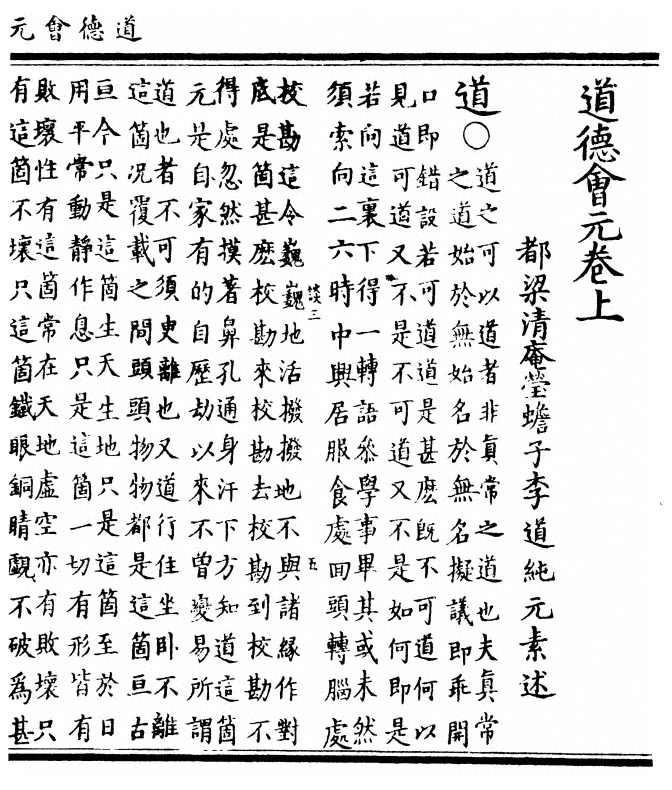 道德會元
道德會元卷上
都梁清庵瑩蟾子李道純元素述
道○道之可以道者非真常之道也夫真常
之道始於無始名於無名擬議即乖開
口即錯設若可道道是甚麽既不可道何以
見道可道又不是不可道又不是如何即是
若向這裏下得一轉語叅學事畢其或未然
須索向二六時中興居服食處回頭轉腦處
談三 五
校勘這令巍巍地活撥撥地不與諸緣作對
底是箇甚麽校勘來校勘去校勘到校勘不
得處忽然摸著鼻孔通身汗下方知道這箇
元是自家有的自歷劫以來不曾變易所謂
道也者不可須臾離也又道行住坐卧不離
這箇况覆載之間頭頭物物都是這箇亘古
亘今只是這箇生天生地只是這箇至於日
用平常動靜作息只是這箇一切有形皆有
敗壞性有這箇常在天地虛空亦有敗壞只
有這箇不壞只這箇鐵眼銅睛覷不破爲甚